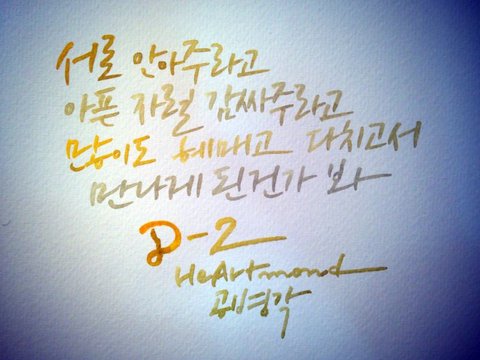 서로 안아주라고
아픈 자릴 감싸주라고
많이도 헤매고 다치고서
만나게 된건가 봐
D-2
HeArtmond
공병각